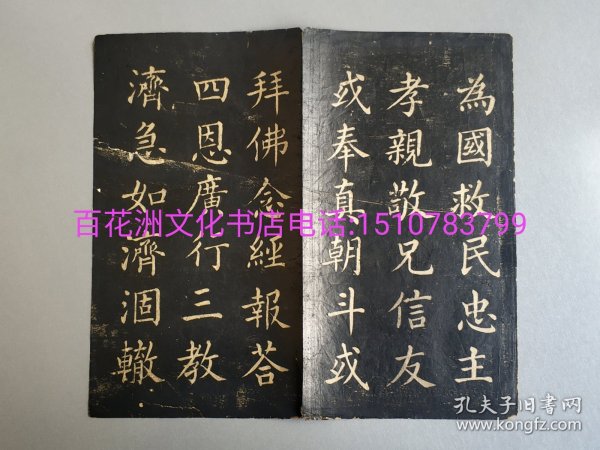 為國救民忠主
孝親敬兄信友
或奉真朝斗或
拜佛念經報荅
四恩廣行三教
濟急如濟涸轍
百花洲文化书店电话:1510783799
孔夫子旧书网
www.kongfz.com